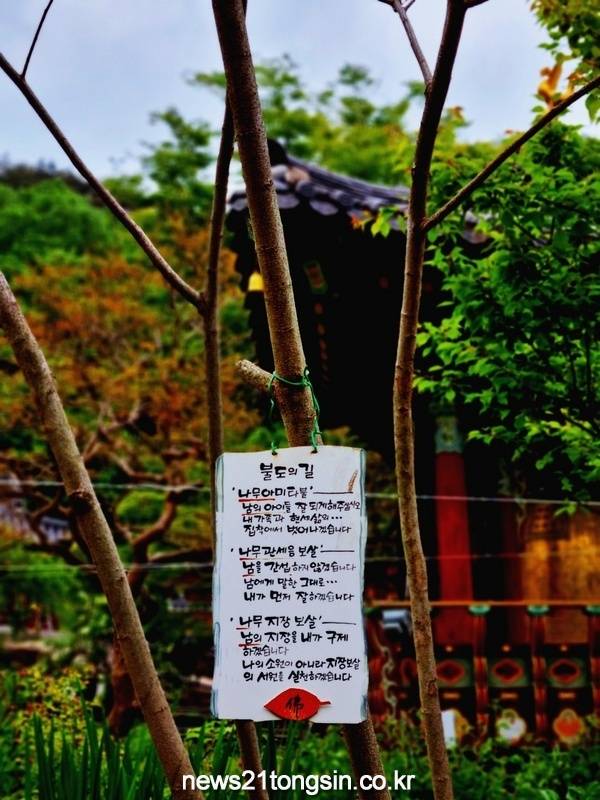 불도의 길
'나무아미타불'
남의 아이들 잘 되게해주십시오
내 가족과 현세삶의...
집착에서 벗어나겠습니다
'나무관세음보살'
남을 간섭하지않겠습니다
남에게 말한 그대로...
내가 먼저 잘하겠습니다
'나무지장보살'
남의 지장을 내가 구제
하겠습니다
나의 소원이 아니라 지장보살
의 서원을 실천하겠습니다
佛
news21tongsin.co.kr